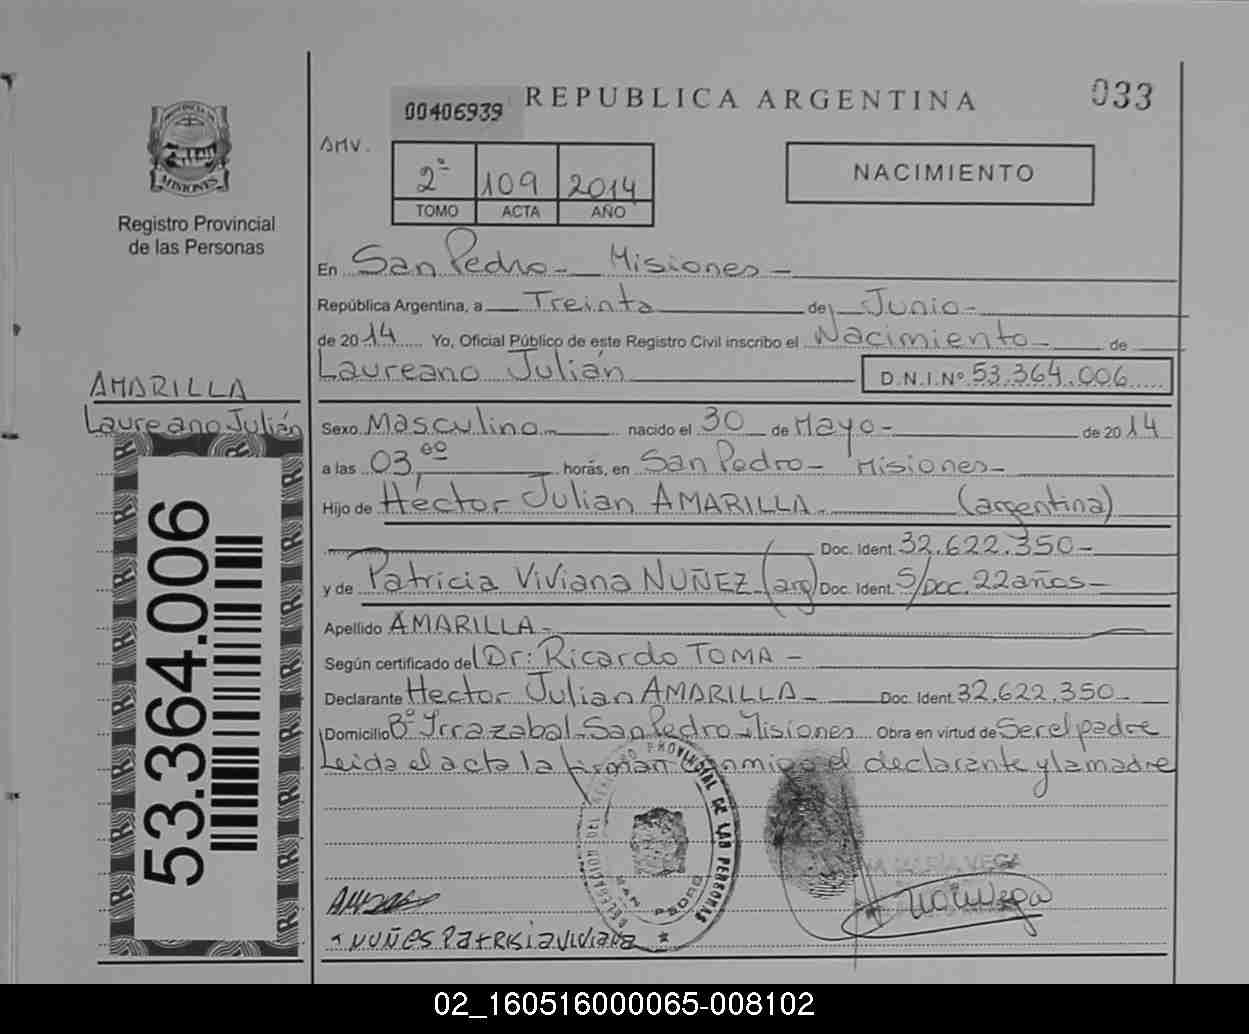 REPUBLICA ARGENTINA
033
00406939
AMV.
2ª 109 2014
TOMO ACTA AÑO
NACIMIENTO
MISIONES
Registro Provincial
de las Personas
En San Pedro - Misiones -
República Argentina, a Treinta de Junio -
de 2014 Yo, Oficial Público de este Registro Civil inscribo el Nacimiento de
Laureano Julián D.N.I.Nº 53.364.006
AMARILLA
Laureano Julián
Sexo Masculino nacido el 30 de Mayo - de 2014
a las 03,00 horas, en San Pedro - Misiones -
Hijo de Héctor Julian AMARILLA (argentina)
Doc. Ident. 32.622.350 -
y de Patricia Viviana NUÑEZ (arg) Doc. Ident. S/Doc. 22 años -
Apellido AMARILLA -
Según certificado del Dr: Ricardo TOMA -
Declarante Hector Julian AMARILLA - Doc. Ident. 32.622.350 -
Domicilio Bº Irrazabal - San Pedro Misiones Obra en virtud de Ser el padre
Leida el acta la firman conmigo el declarante y la madre
53.364.006
PROVINCIAL DE LAS PERSONAS
SAN PEDRO
MARÍA VEGA
NUÑES PATRISIA VIVIANA
02_160516000065-008102